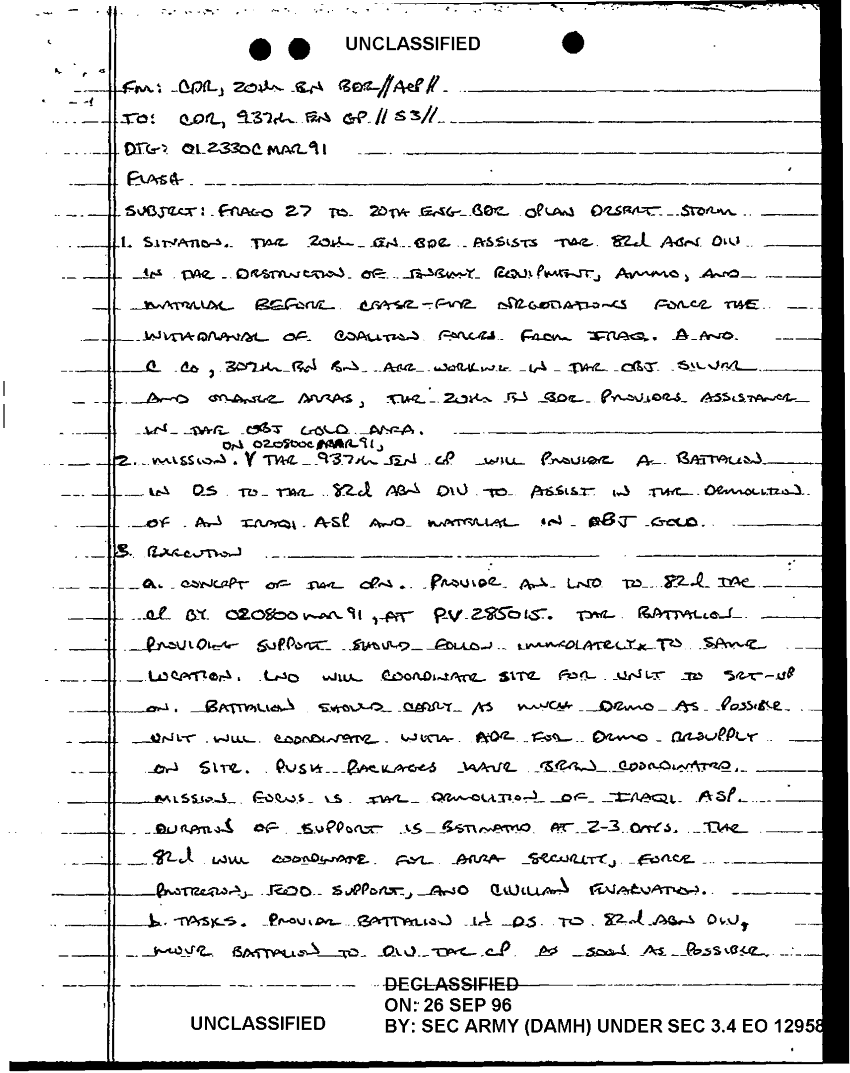 UNCLASSIFIED
FM: CDR, 20th EN BDE//ACP//
TO: CDR, 937th EN GP //S3//
DTG: 012330C MAR 91
FLASH
SUBJECT: FRAGO 27 TO 20TH ENG BDE OPLAN DESERT STORM
1. SITUATION. THE 20th EN BDE ASSISTS THE 82d ABN DIV
IN THE DESTRUCTION OF ENEMY EQUIPMENT, AMMO, AND
MATERIAL BEFORE CEASE-FIRE NEGOTIATIONS FORCE THE
WITHDRAWAL OF COALITION FORCES FROM IRAQ. A AND
C CO, 307th EN BN ARE WORKING IN THE OBJ SILVER
AND ORANGE AREAS, THE 20th EN BDE PROVIDES ASSISTANCE
IN THE OBJ GOLD AREA.
ON 020800C MAR 91,
2. MISSION. V THE 937th EN GP WILL PROVIDE A BATTALION
IN DS TO THE 82d ABN DIV TO ASSIST IN THE DEMOLITION
OF AN IRAQI ASP AND MATERIAL IN OBJ GOLD.
3. EXECUTION
a. CONCEPT OF THE OPN. PROVIDE AN LNO TO 82d TAC
CP BY 020800 MAR 91, AT PV 285015. THE BATTALION
PROVIDING SUPPORT SHOULD FOLLOW IMMEDIATELY TO SAME
LOCATION. LNO WILL COORDINATE SITE FOR UNIT TO SET-UP
ON. BATTALION SHOULD CARRY AS MUCH DEMO AS POSSIBLE
UNIT WILL COORDINATE WITH ADE FOR DEMO RESUPPLY
ON SITE. PUSH PACKAGES HAVE BEEN COORDINATED.
MISSION FOCUS IS THE DEMOLITION OF IRAQI ASP.
DURATION OF SUPPORT IS ESTIMATED AT 2-3 DAYS. THE
82d WILL COORDINATE FOR AREA SECURITY, FORCE
PROTECTION, FOOD SUPPORT, AND CIVILIAN EVACUATION.
b. TASKS. PROVIDE BATTALION IN DS TO 82d ABN DIV,
MOVE BATTALION TO DIV TAC CP AS SOON AS POSSIBLE.
DECLASSIFIED
ON: 26 SEP 96
UNCLASSIFIED BY: SEC ARMY (DAMH) UNDER SEC 3.4 EO 12958